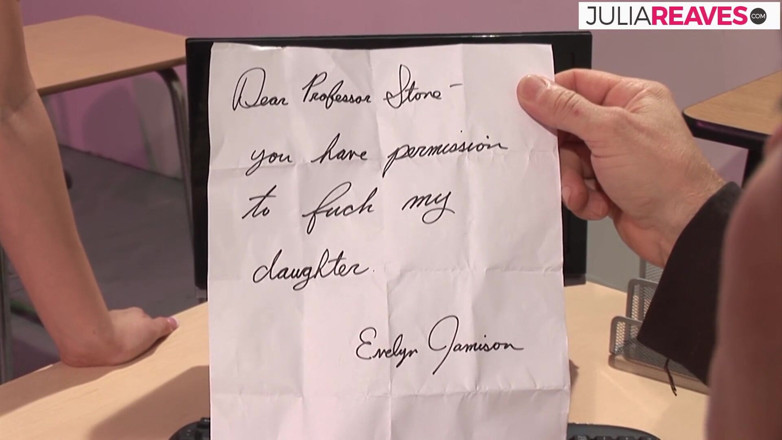 JULIAREAVES.COM
Dear Professor Stone-
you have permission
to fuck my
daughter.
Evelyn Jamison